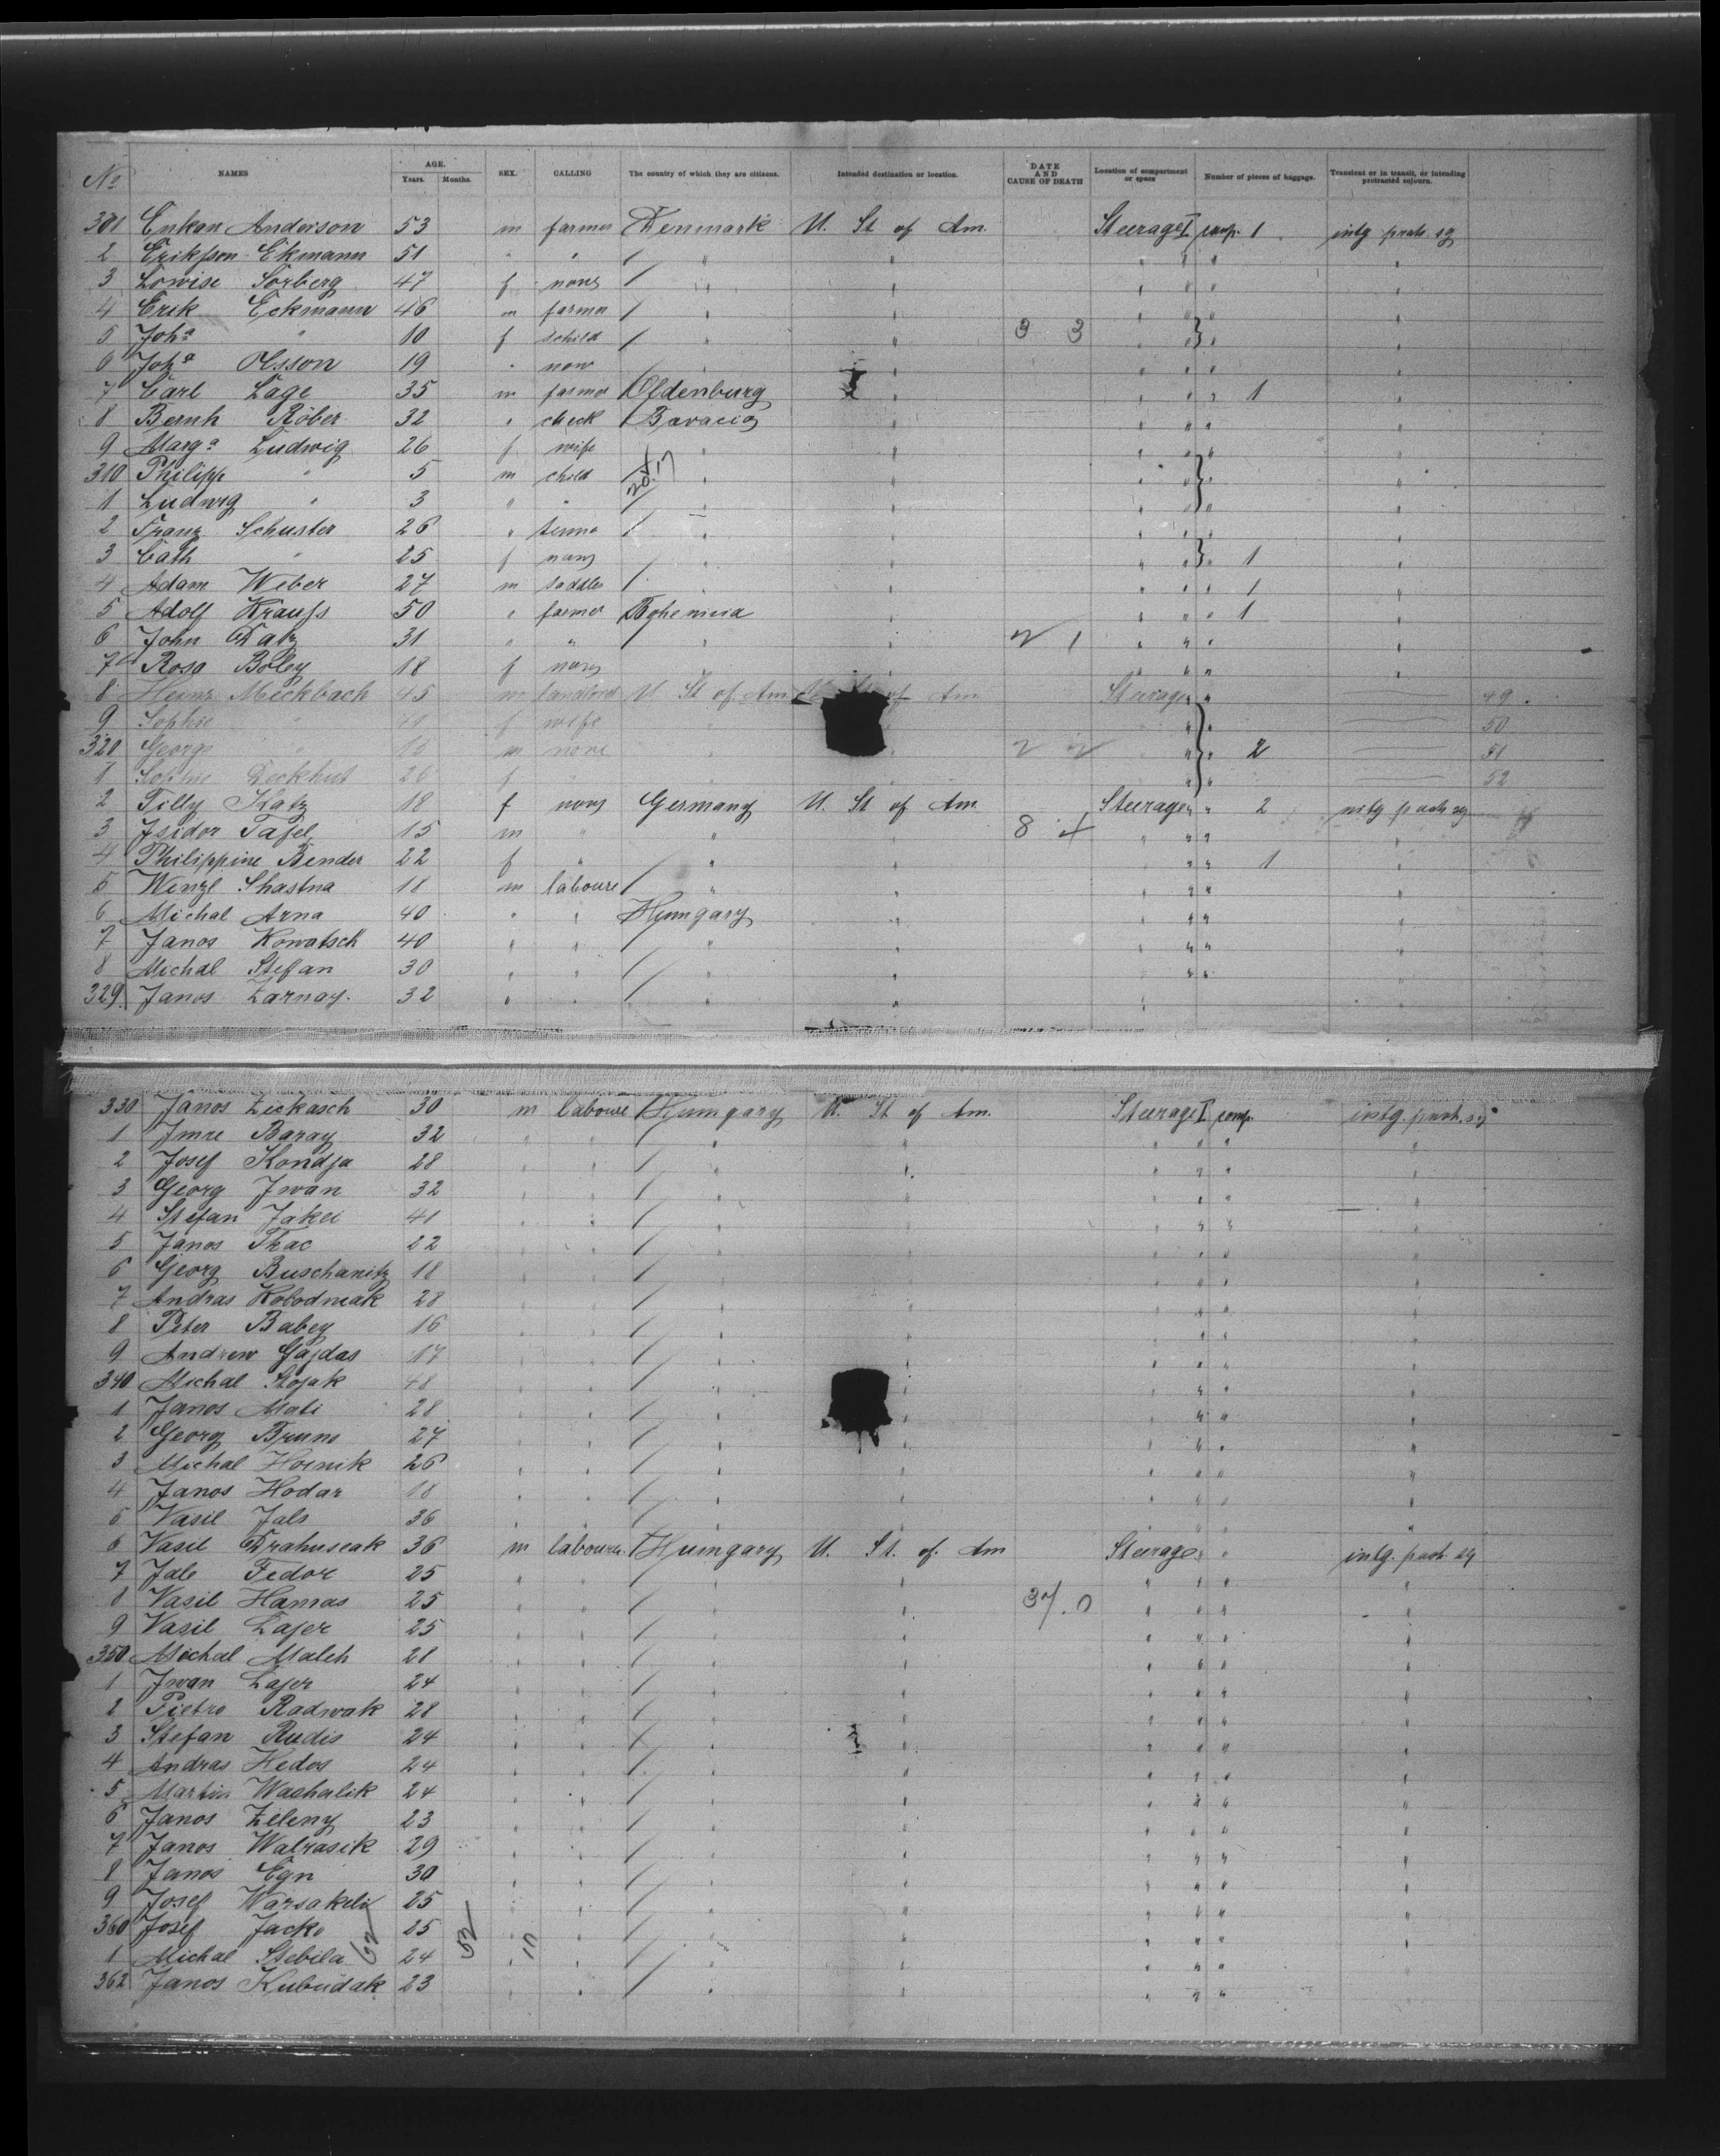 No NAMES AGE. Years. Months. SEX. CALLING The country of which they are citizens. Intended destination or location. DATE AND CAUSE OF DEATH Location of compartment or space Number of pieces of baggage. Transient or in transit, or intending protracted sojourn.
301 Enkan Anderson 53 m farmer Denmark U. St of Am. Steerage I comp. 1 intg protr. sj
2 Eriksson Ekmann 51 " " " "
3 Lowise Sorberg 47 f none " "
4 Erik Eckmann 46 m farmer " "
5 Joha " 10 f schild " " 3 3
6 Joha Olsson 19 " non " "
7 Carl Lage 35 m farmer Oldenburg " 1
8 Bernh Röber 32 " Bavaria "
9 Marga Ludwig 26 f wife " "
310 Philipp " 5 m child " "
1 Ludwig " 3 " " " "
2 Franz Schuster 26 " " "
3 Cath " 25 f none " " 1
4 Adam Weber 27 m saddler " " 1
5 Adolf Krauss 50 " farmer Bohemia " 1
6 John Datz 31 " " " " 2 1
7 Rosa Boley 18 f none " "
8 Heinr Meckbach 45 m landlord U St of Am U St of Am Steerage " 49
9 Sophie " f wife " " 50
320 George " 10 m none " " 2 2 2 51
1 Sophie Deckhut 26 f " " " 52
2 Tilly Katz 18 f none Germany U. St of Am Steerage " 2 intg protr sj
3 Isidor Tafel 15 m " " " 8 4
4 Philippine Bender 22 f " " " 1
5 Wenzl Shastna 18 m laboure " "
6 Michal Arna 40 " " Hungary "
7 Janos Kowatsch 40 " " " "
8 Michal Stefan 30 " " " "
329. Janos Zarnay. 32 " " " "
330 Janos Zickasch 30 m laboure Hungary U. St of Am. Steerage I comp. intg. protr. sj
1 Imre Baray 32 " " " "
2 Josef Kondja 28 " " " "
3 Georg Iwan 32 " " " "
4 Stefan Jakei 41 " " " "
5 Janos Thac 22 " " " "
6 Georg Buschanitz 18 " " " "
7 Andras Kolodniak 28 " " " "
8 Peter Babey 16 " " " "
9 Andrew Gajdas 17 " " " "
340 Michal Stojak 48 " " " "
1 Janos Mati 28 " " " "
2 Georg Bruno 27 " " " "
3 Michal Hornik 26 " " " "
4 Janos Hodar 18 " " " "
5 Vasil Jals 36 " " " "
6 Vasil Drahuseak 36 m laboure. Hungary U. St. of. Am Steerage " " intg. protr. sj
7 Jale Fedor 25 " " " "
8 Vasil Hamas 25 " " " " 37.0
9 Vasil Lajer 25 " " " "
350 Michal Maleh 28 " " " "
1 Iwan Lajer 24 " " " "
2 Pietro Radwak 28 " " " "
3 Stefan Rudis 24 " " " "
4 Andras Hedos 24 " " " "
5 Martin Wachalik 24 " " " "
6 Janos Zeleny 23 " " " "
7 Janos Walrasik 29 " " " "
8 Janos Egri 30 " " " "
9 Josef Warsakeli 25 " " " "
360 Josef Jacko 25 " " " "
1 Michal Stebila 24 " " " "
362 Janos Kubudak 23 " " " "